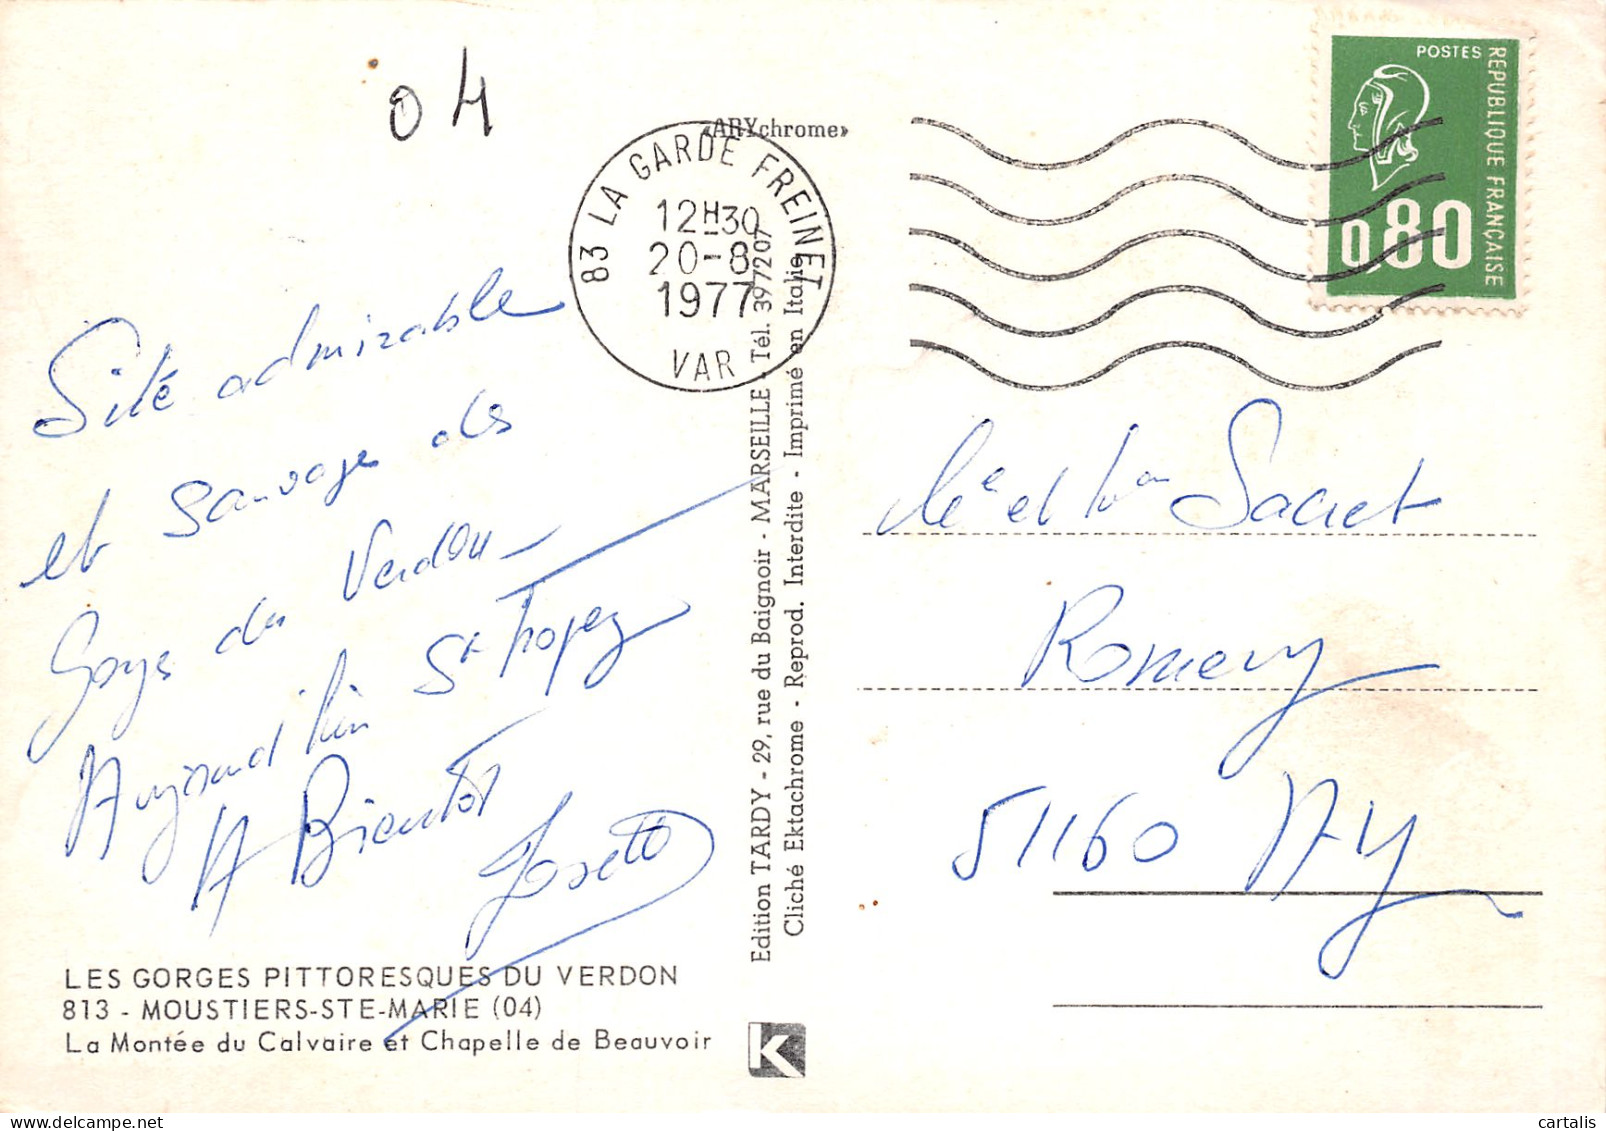 04
«ARYchrome»
83 LA GARDE FREINET
12H30
20-8
1977
VAR
POSTES
REPUBLIQUE FRANÇAISE
0,80
Site admirable
et sauvage des
Gorges du Verdon
Aujourd'hui St Tropez
A Bientôt
LES GORGES PITTORESQUES DU VERDON
813 - MOUSTIERS-STE-MARIE (04)
La Montée du Calvaire et Chapelle de Beauvoir
Edition TARDY - 29, rue du Baignoir - MARSEILLE - Tél. 3977207
Cliché Ektachrome - Reprod. Interdite - Imprimé en Italie
K
et Sacret
Romery
51160 AY
cartalis | delcampe.net